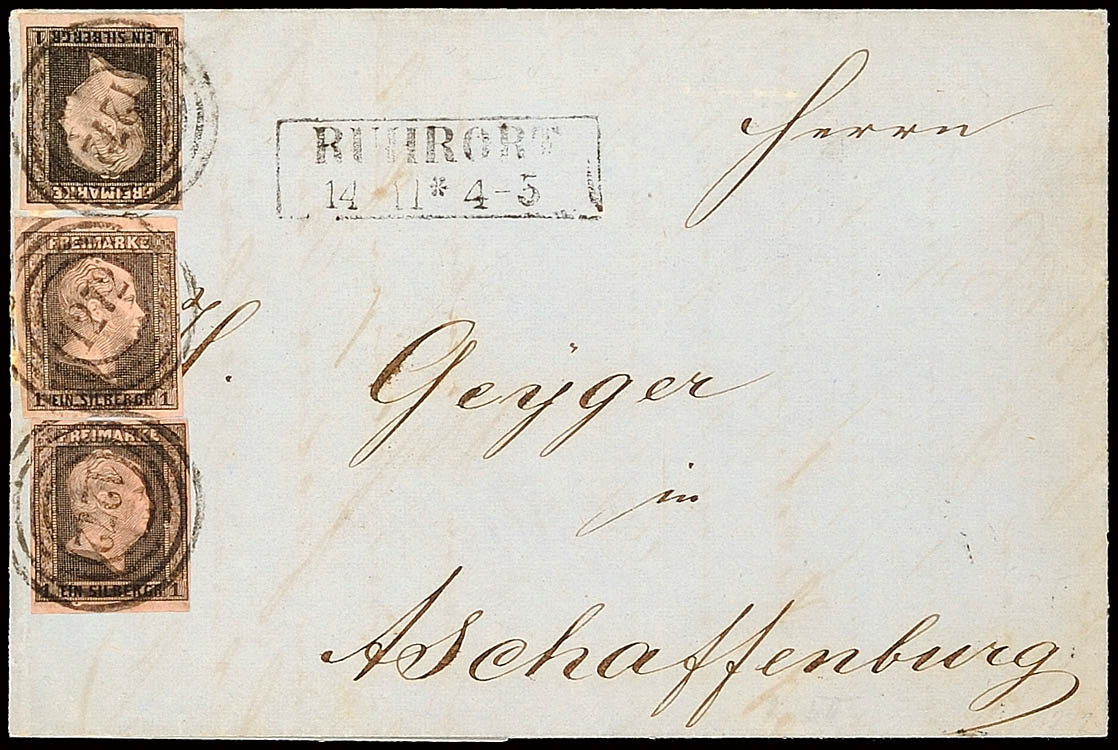 1 EIN SILBERGR 1
1272
FREIMARKE
RUHRORT
14 11 * 4-5
Herrn
FREIMARKE
1272
1 EIN SILBERGR 1
H. Geÿger
in
FREIMARKE
1272
1 EIN SILBERGR 1
Aschaffenburg